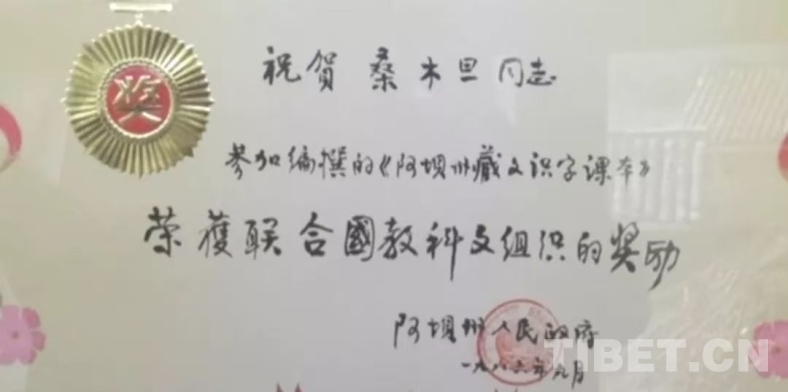 奖
祝贺 桑木旦同志
参加编撰的《阿坝州藏文识字课本》
荣獲联合國教科文组织的奖励
阿坝州人民政府
一九八六年九月
TIBET.CN